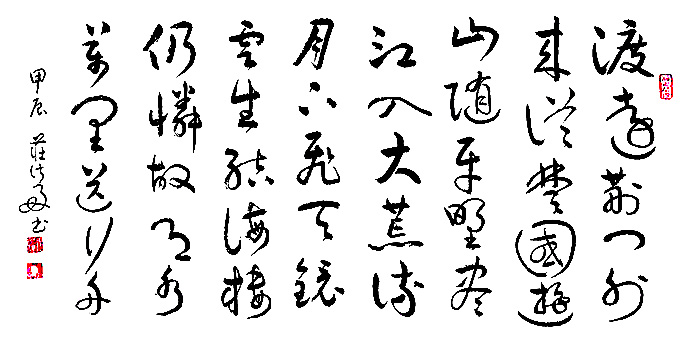 渡遠荆门外
来從楚國遊
山随平野盡
江入大荒流
月下飛天鏡
雲生結海樓
仍憐故乡水
萬里送行舟
甲辰 莊 书